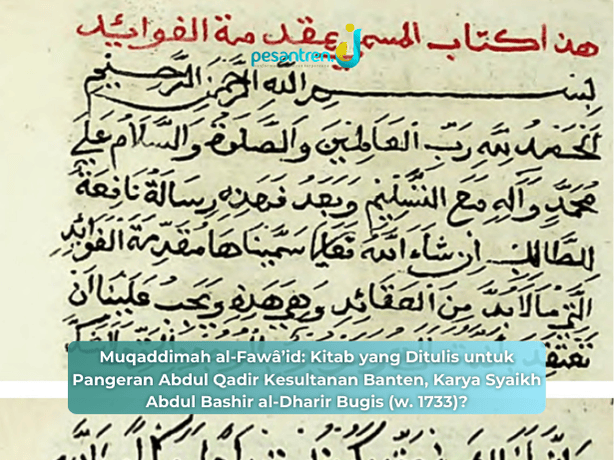 هذا كتاب المسمى بمقدمة الفوائد
pesantren.id
بسم الله الرحمن الرحيم
الحمد لله رب العالمين والصلوة والسلام على
محمد وآله مع التسليم وبعد فهذه رسالة نافعة
للطالب ان شاء الله تعالى سميناها مقدمة الفوائد
التي ما لابد من العقائد وهي هذه ويجب علينا ان
نعتقد
Muqaddimah al-Fawâ’id: Kitab yang Ditulis untuk
Pangeran Abdul Qadir Kesultanan Banten, Karya Syaikh
Abdul Bashir al-Dharir Bugis (w. 1733)?